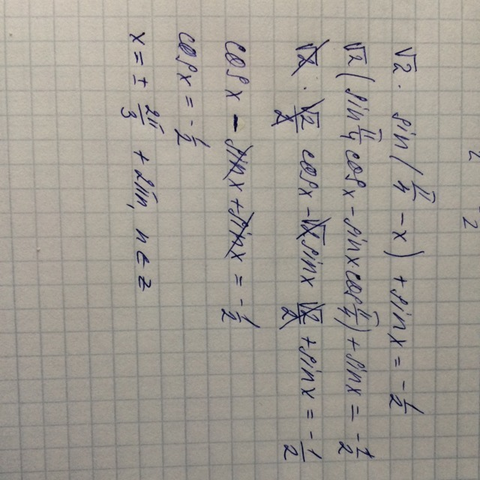 2 2
√2 · sin(π/4 - x) + sinx = -1/2
√2(sin π/4 cosx - sinx cos π/4) + sinx = -1/2
√2 · √2/2 cosx - √2 sinx √2/2 + sinx = -1/2
cosx - sinx + sinx = -1/2
cosx = -1/2
x = ± 2π/3 + 2πn, n ∈ z